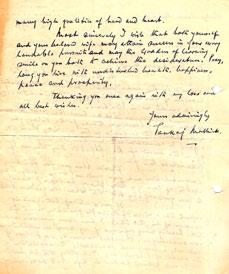 many high qualities of head and heart.
Most sincerely I wish that both yourself
and your beloved wife may attain success in your very
laudable pursuits and may the Goddess of learning
smile on you both to achieve the desideratum. Pray,
long you live with undiminished health, happiness,
peace and prosperity.
Thanking you once again with my love and
all best wishes.
Yours admiringly
Pankaj Mullick.